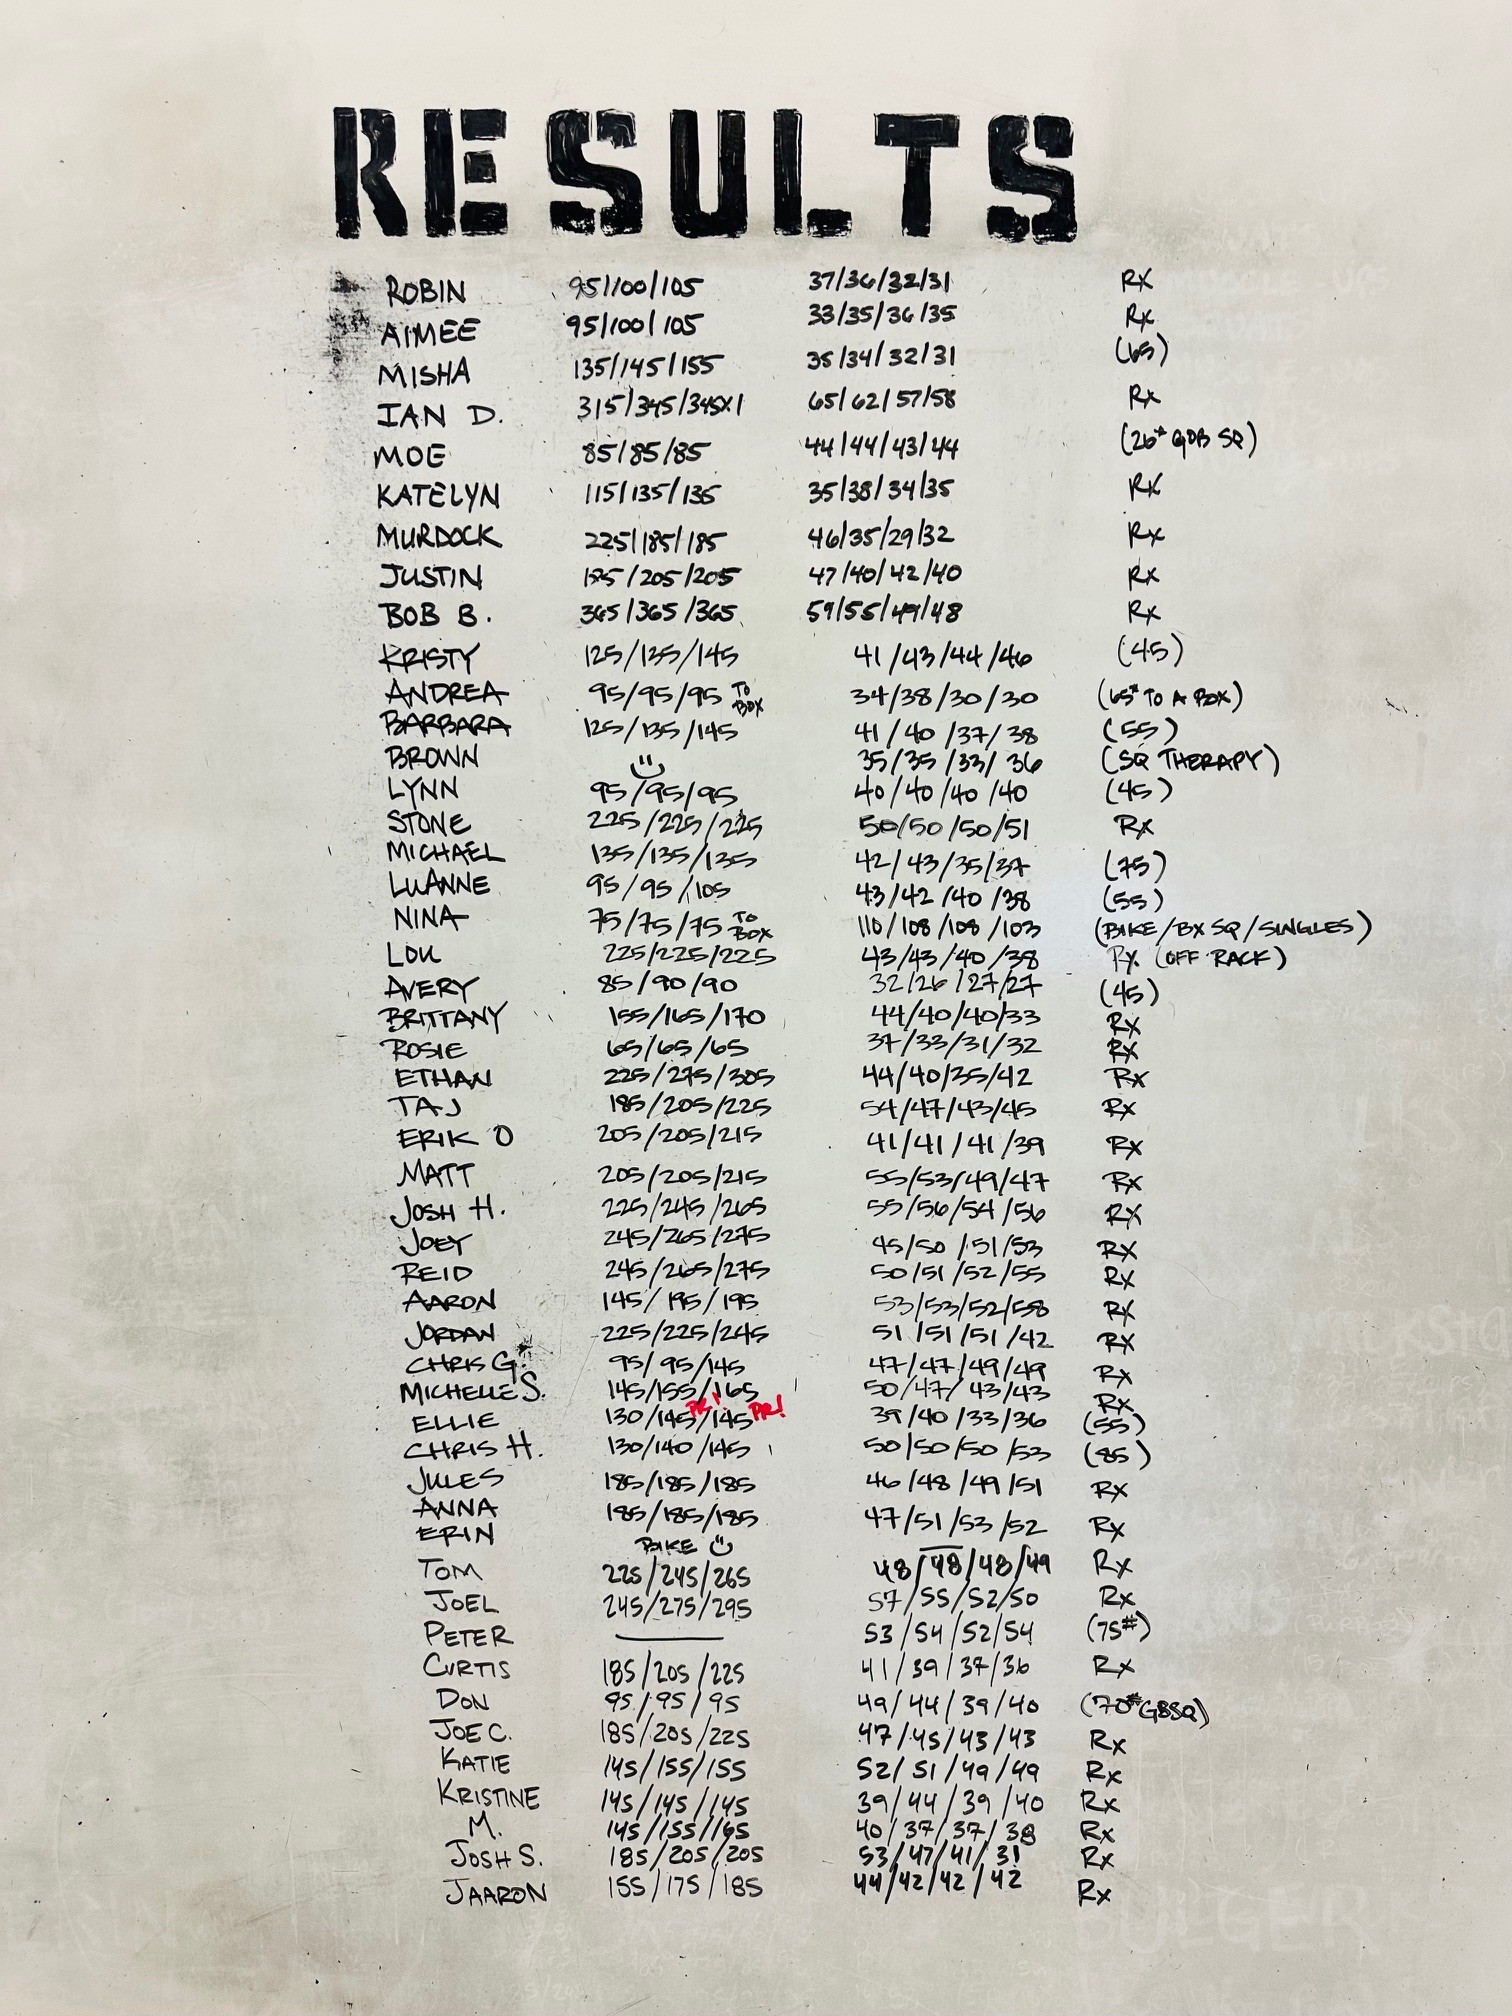 RESULTS
ROBIN 95/100/105 37/36/32/31 RX
AIMEE 95/100/105 33/35/36/35 Rx
MISHA 135/145/155 35/34/32/31 (65)
IAN D. 315/345/345X1 65/62/57/58 Rx
MOE 85/85/85 44/44/43/44 (26# GOB SQ)
KATELYN 115/135/135 35/38/34/35 RX
MURDOCK 225/185/185 46/35/29/32 Rx
JUSTIN 185/205/205 47/40/42/40 Rx
BOB B. 365/365/365 59/55/49/48 Rx
KRISTY 125/135/145 41/43/44/46 (45)
ANDREA 95/95/95 TO BOX 34/38/30/30 (65# TO A BOX)
BARBARA 125/135/145 41/40/37/38 (55)
BROWN 35/35/33/36 (SQ THERAPY)
LYNN 95/95/95 40/40/40/40 (45)
STONE 225/225/225 50/50/50/51 Rx
MICHAEL 135/135/135 42/43/35/37 (75)
LUANNE 95/95/105 43/42/40/38 (55)
NINA 75/75/75 TO BOX 110/108/108/103 (BIKE/BX SQ/SINGLES)
LOU 225/225/225 43/43/40/38 Rx (OFF RACK)
AVERY 85/90/90 32/26/27/27 (45)
BRITTANY 155/165/170 44/40/40/33 Rx
ROSIE 65/65/65 37/33/31/32 Rx
ETHAN 225/275/305 44/40/35/42 Rx
TAJ 185/205/225 54/47/43/45 Rx
ERIK O 205/205/215 41/41/41/39 Rx
MATT 205/205/215 55/53/49/47 Rx
JOSH H. 225/245/265 55/56/54/56 Rx
JOEY 245/265/275 45/50/51/53 Rx
REID 245/265/275 50/51/52/55 Rx
AARON 145/195/195 53/53/52/58 Rx
JORDAN 225/225/245 51/51/51/42 Rx
CHRIS G. 95/95/145 47/47/49/49 Rx
MICHELLE S. 145/155/165 50/47/43/43 Rx
ELLIE 130/145 PR!/145 PR! 39/40/33/36 (55)
CHRIS H. 130/140/145 50/50/50/53 (85)
JULES 185/185/185 46/48/49/51 Rx
ANNA 185/185/185 47/51/53/52 Rx
ERIN BIKE
TOM 225/245/265 48/48/48/49 Rx
JOEL 245/275/295 57/55/52/50 Rx
PETER 53/54/52/54 (75#)
CURTIS 185/205/225 41/39/37/36 Rx
DON 95/95/95 49/44/39/40 (70# GBSQ)
JOE C. 185/205/225 47/45/43/43 Rx
KATIE 145/155/155 52/51/49/49 Rx
KRISTINE 145/145/145 39/44/39/40 Rx
M. 145/155/165 40/37/37/38 Rx
JOSH S. 185/205/205 53/47/41/31 Rx
JAARON 155/175/185 44/42/42/42 Rx